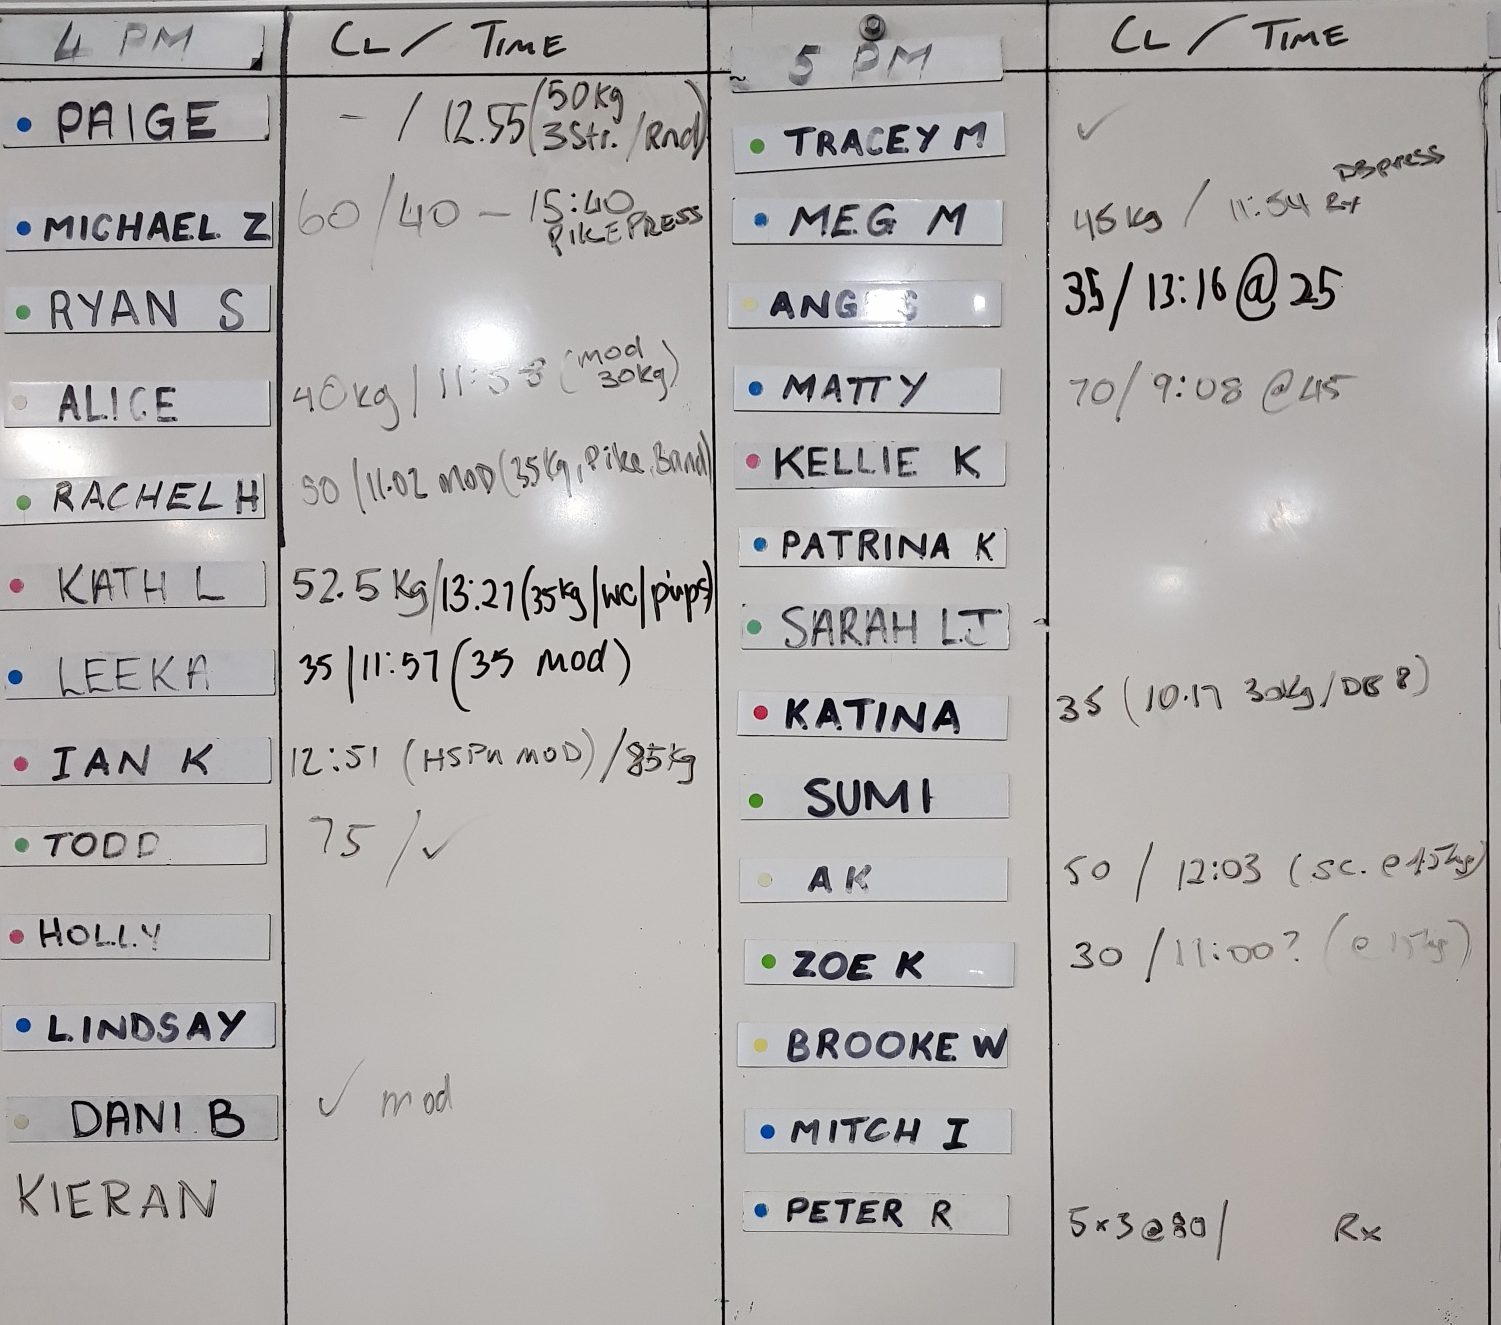 4 PM CL / TIME
PAIGE - / 12.55 (50kg 3Str. /Rnd)
MICHAEL Z 60/40 - 15:40 PIKE PRESS
RYAN S
ALICE 40kg / 11:58 (mod 30kg)
RACHEL H 50 / 11.02 MOD (35kg, Pike, Band)
KATH L 52.5 Kg/13:27 (35kg/wc/pups)
LEEKA 35 / 11:57 (35 mod)
IAN K 12:51 (HSPU MOD) / 85kg
TODD 75 / ✓
HOLLY
LINDSAY
DANI B ✓ mod
KIERAN
5 PM CL / TIME
TRACEY M ✓
MEG M 45kg / 11:54 Rx DB press
ANG S 35 / 13:16 @ 25
MATTY 70 / 9:08 @ 45
KELLIE K
PATRINA K
SARAH LJ
KATINA 35 (10.17 30kg / DB 8)
SUMI
AK 50 / 12:03 (sc. @
ZOE K 30 / 11:00? (@ 15kg)
BROOKE W
MITCH I
PETER R 5x3 @ 80 / Rx